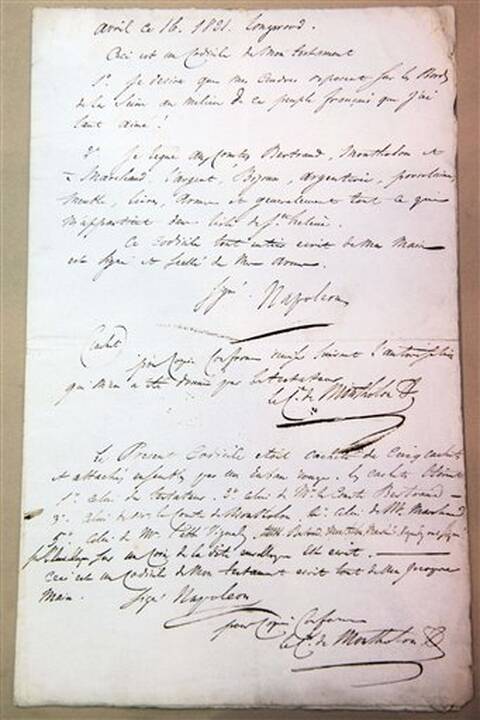 avril ce 16. 1821. Longwood.
Ceci est un Codicile de Mon testament
1°. Je desire que mes Cendres reposent sur les Bords
de la Seine au milieu de ce peuple français que j'ai
tant aimé !
2°. Je legue aux Comtes Bertrand, Montholon et
Marchand l'argent, Bijoux, argenterie, porcelaine,
Meuble, livres, armes et generalement tout ce qui
m'appartient dans l'isle de Ste helene.
Ce Codicile tout entier ecrit de Ma Main
est signé et scellé de Mes armes.
signé Napoleon
Cachet
pour Copie Conforme suivant l'autorisation
qui m'en a été donnée par le testateur
le Ct. de Montholon
Le Present Codicile etoit cacheté de Cinq cachets
et attachés ensemble par un Ruban rouge. les cachets
1°. Celui du testateur. 2°. Celui de Mr. le Comte Bertrand —
3°. Celui de Mr. le Comte de Montholon 4°. Celui de Mr. Marchand
5°. Celui de Mr. l'abbé Vignaly
sur un Coin de la dite enveloppe est ecrit. —
Ceci est un Codicile de Mon testament ecrit tout de Ma propre
Main. signé Napoleon
pour Copie Conforme
le Ct. de Montholon